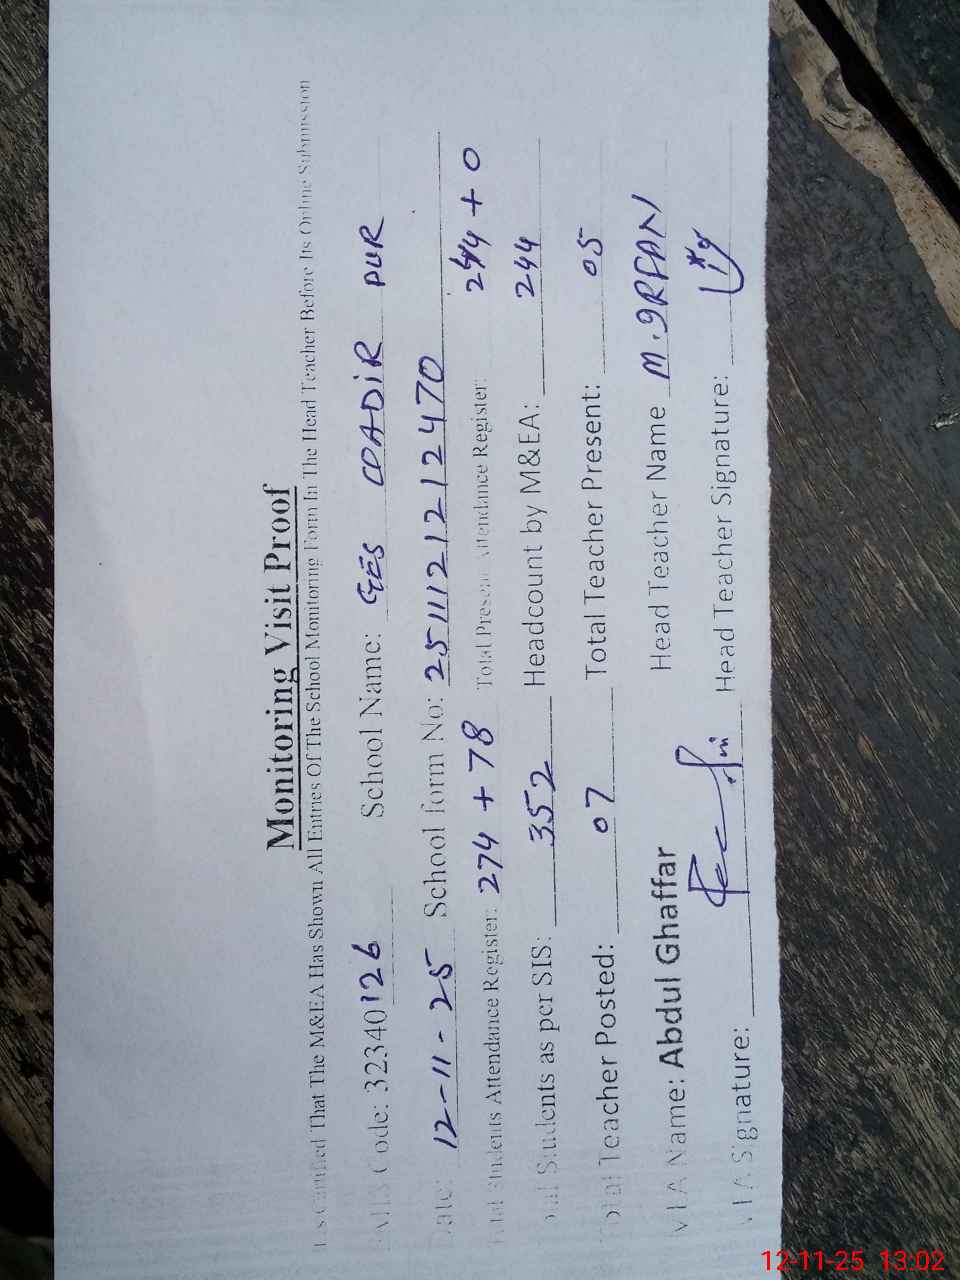 Monitoring Visit Proof
Is Certified That The M&EA Has Shown All Entries Of The School Monitoring Form In The Head Teacher Before Its Online Submission
Code: 32340126 School Name: GES QADIR PUR
Date: 12-11-25 School form No: 251112121212470
Total Students Attendance Register: 274 + 78 Total Present Attendance Register: 244 + 0
Students as per SIS: 352 Headcount by M&EA: 244
Total Teacher Posted: 07 Total Teacher Present: 05
Name: Abdul Ghaffar Head Teacher Name M. IRFAN
Signature: Head Teacher Signature:
12-11-25 13:02